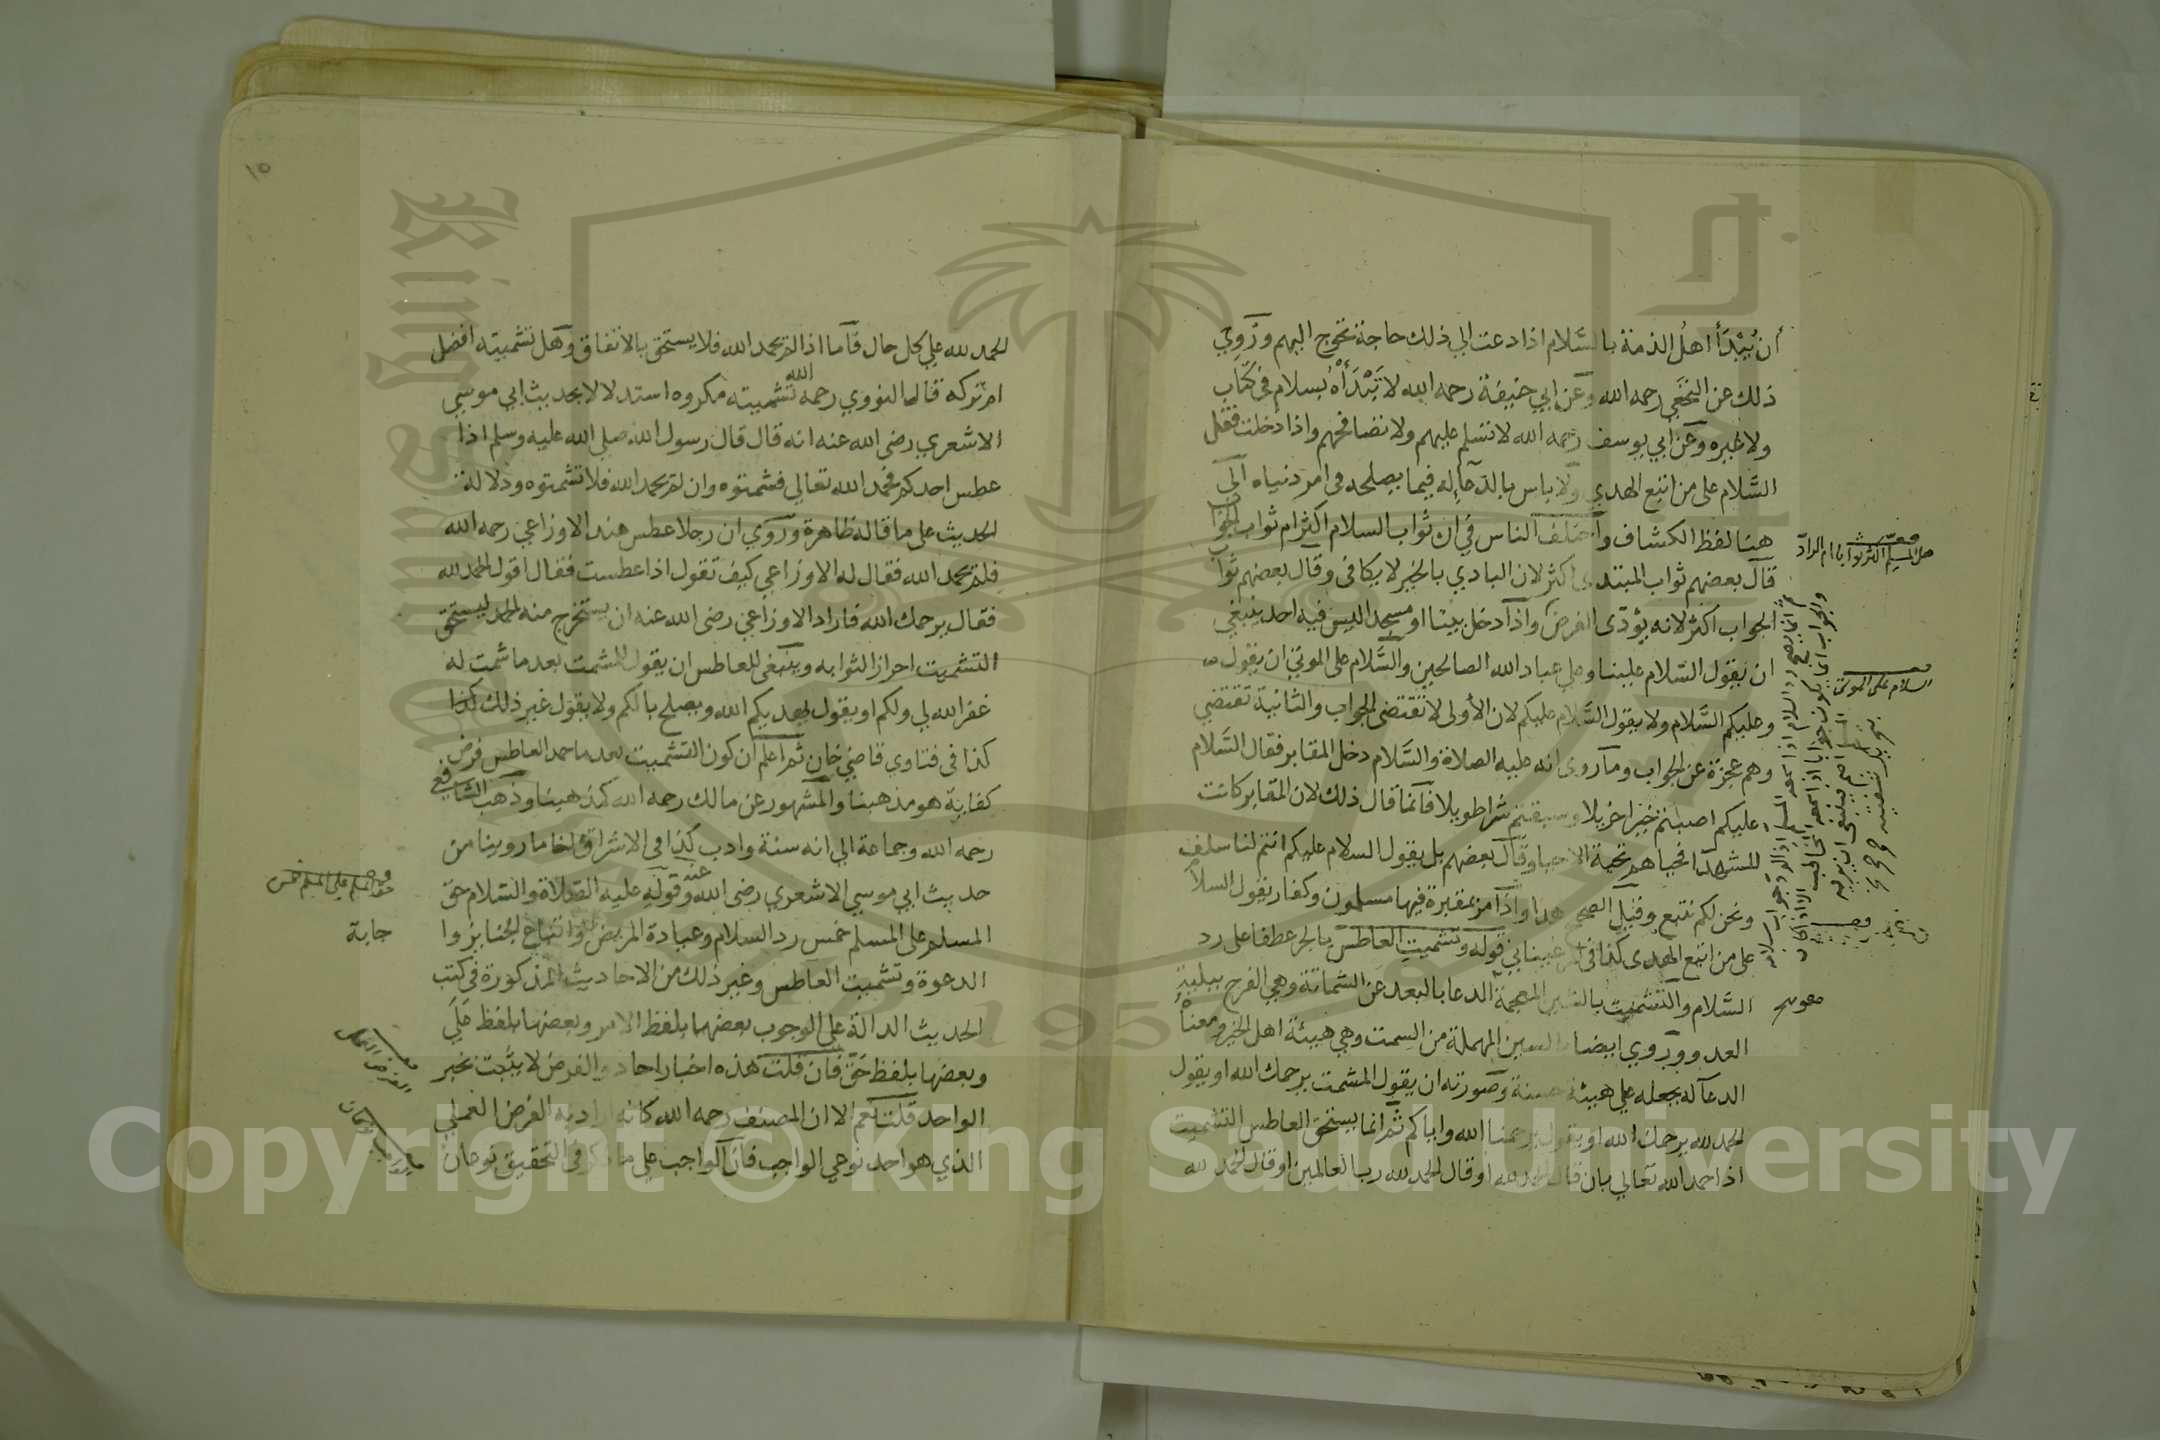 أن يُبْدَأ اهلُ الذمة بالسَّلام اذا دعت الي ذلك حاجة تحوج اليهم ورَوي
ذلك عن النخَعي رحمه الله وعَن ابي حنيفة رحمه الله لا تَبْدَأْهُ بسلام في كتاب
ولا غيره وعَن ابي يوسف رحمه الله لا تسلم عليهم ولا تصافحهم واذا دخلت فقل
السَّلام على من اتبع الهدي ولا باس بالدعآ له فيما يصلحه في امر دنياه الى
هنا لفظ الكشاف واختلف الناس في ان ثواب السلام اكثر ام ثواب الجوا
قال بعضهم ثواب المبتدي اكثر لان البادي بالخير لا يكافى وقال بعضهم ثواب
الجواب اكثر لانه يؤدّى الفرض واذا دخل بيتا او مسجد اليس فيه احد ينبغي
ان يقول السّلام علينا وعلي عباد الله الصالحين والسَّلام على الموتي ان يقول
وعليكم السَّلام ولا يقول السَّلام عليكم لان الأولى لا تقتضى الجواب والثانية تقتضي
وهم عجزة عن الجواب ومآ روى انه عليه الصلاة والسَّلام دخل المقابر فقال السَّلام
عليكم اصبتم خيرا جزيلا وسبقتم شرا طويلا فآنما قال ذلك لان المقابر كانت
للشهدآ فحياهم تحية الاحيا وقال بعضهم بل يقول السلام عليكم انتم لنا سلف
ونحن لكم نتبع وقيل الصحيح هذا واذا مر بمقبرة فيها مسلمون وكفار يقول السلام
على من اتبع الهدى كذا في قوله وتشميت العاطس بالجر عطفا على رد
السَّلام والتشميت بالشين المعجمة الدعا بالبعد عن الشماتة وهي الفرح ببلية
العدو وروي ايضا بالسين المهملة من السمت وهي هيئة اهل الخير ومعناه
الدعآ له بجعله علي هيئة حسنة وصورته ان يقول المشمت يرحمك الله او يقول
الحمد لله يرحمك الله او يقول يرحمنا الله واياكم ثم انما يستحق العاطس التشميت
اذا حمد الله تعالي بان قال الحمد لله او قال الحمد لله رب العالمين او قال الحمد لله
هل المسلم اكثر ثوابا ام الراد
السلام على الموتى
١٥
الحمد لله علي كل حال فآما اذا لم يحمد الله فلا يستحق بالاتفاق وهَل تشميته افضل
ام تركه قال النووي رحمه الله تشميته مكروه استدلالا بحديث ابي موسي
الاشعري رضى الله عنه انه قال قال رسول الله صلى الله عليه وسلم اذا
عطس احدكم فحمد الله تعالي فشمتوه وان لم يحمد الله فلا تشمتوه ودلالة
الحديث على ما قاله ظاهرة ورَوي ان رجلا عطس عند الاوزاعي رحمه الله
فلم يحمد الله فقال له الاوزاعي كيف تقول اذا عطست فقال اقول الحمد لله
فقال يرحمك الله فاراد الاوزاعي رضى الله عنه ان يستخرج منه الحمد ليستحق
التشميت احراز الثوابه وينبغى للعاطس ان يقول للمشمت بعد ما شمت له
غفر الله لي ولكم او يقول يهديكم الله ويصلح بالكم ولا يقول غير ذلك كذا
كذا فى فتاوي قاضي خان ثم اعلم ان كون التشميت بعد ما حمد العاطس فرض
كفاية هو مذهبنا والمشهور عن مالك رحمه الله كمذهبنا وذهب الشافعي
رحمه الله وجماعة الي انه سنة وادب كذا في الاشراق لنا ما روينا من
حديث ابي موسي الاشعري رضى الله عنه وقوله عليه الصلاة والسّلام حق
المسلم على المسلم خمس رد السلام وعيادة المريض واتباع الجنايز وا
جابة
الدعوة وتشميت العاطس وغير ذلك من الاحاديث المذكورة في كتب
الحديث الدالة على الوجوب بعضها بلفظ الامر وبعضها بلفظ عَلَي
وبعضها بلفظ حَقّ فان قلت هذه اخبار احاد والفرض لا يثبت بخبر
الواحد قلت نعم الا ان المصنف رحمه الله كانه اراد به الفرض العملي
الذي هو احد نوعي الواجب فان الواجب علي ما ذكر في التحقيق نوعان
حق المسلم على المسلم خمس
Copyright © King Saud University
King Saud
1957